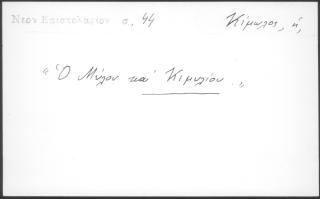 Νεον Επιστολαριον σ. 44 Κίμωλος, ἡ,
"Ὁ Μήλου καὶ Κιμωλίου."